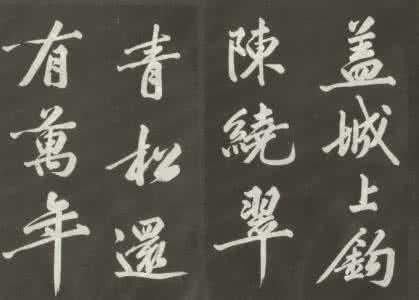 盖城上鈎
陳繞翠
青松還
有萬年